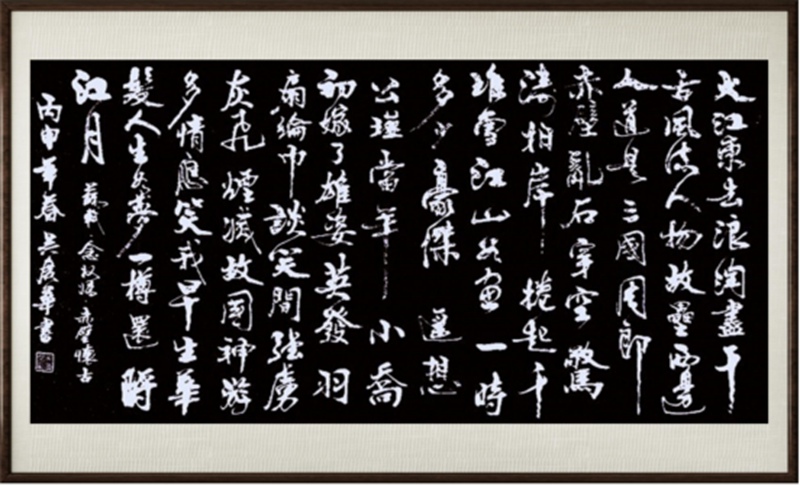 大江東去浪淘盡千
古風流人物故壘西邊
人道是三國周郎
赤壁亂石穿空驚
濤拍岸捲起千
堆雪江山如畫一時
多少豪傑 遥想
公瑾當年 小喬
初嫁了雄姿英發羽
扇綸巾談笑間強虜
灰飛煙滅故國神游
多情應笑我早生華
髮人生如夢一樽還酹
江月 蘇軾念奴嬌赤壁懷古
丙申年春吳華書